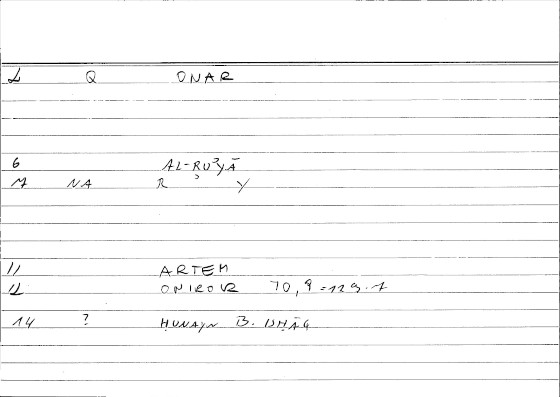 1 Q ONAR
6 AL-RUʾYĀ
NA R ʾ Y
11 ARTEM
12 ONIROCR 70,9=129.1
14 ? ḤUNAYN B. ISḤĀQ